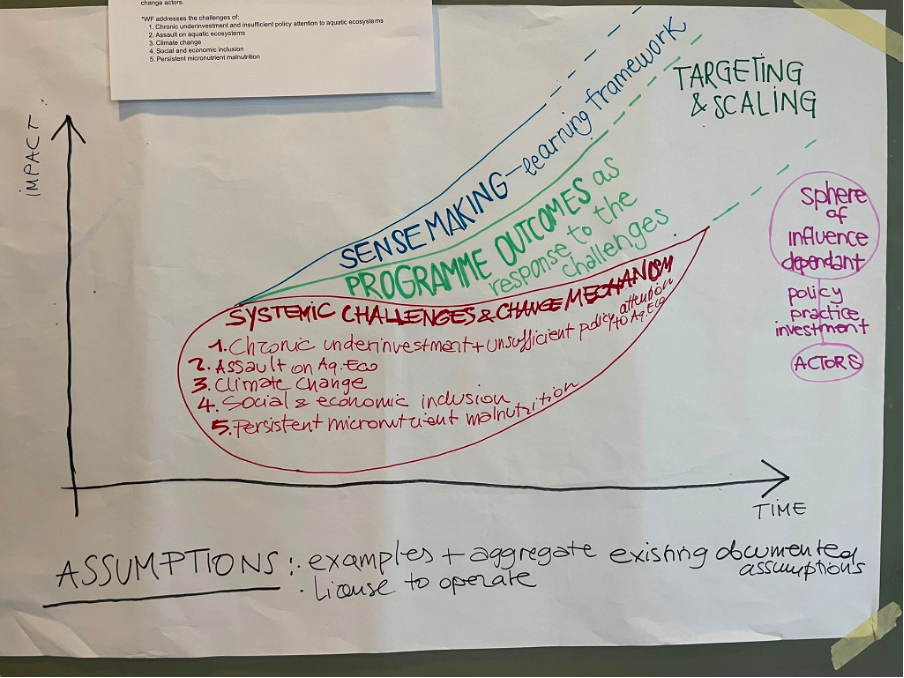 change actors.
*WF addresses the challenges of:
1. Chronic underinvestment and insufficient policy attention to aquatic ecosystems
2. Assault on aquatic ecosystems
3. Climate change
4. Social and economic inclusion
5. Persistent micronutrient malnutrition
IMPACT
SENSEMAKING - learning framework
TARGETING
& SCALING
PROGRAMME OUTCOMES as
response to the
challenges
SYSTEMIC CHALLENGES & CHANGE MECHANISM
1. Chronic underinvestment + unsufficient policy attention
to Aq. Eco
2. Assault on Aq. Eco
3. Climate change
4. Social & economic inclusion
5. Persistent micronutrient malnutrition
sphere
of
influence
dependant
policy
practice
investment
ACTORS
TIME
ASSUMPTIONS: · examples + aggregate existing documented
assumptions
· License to operate